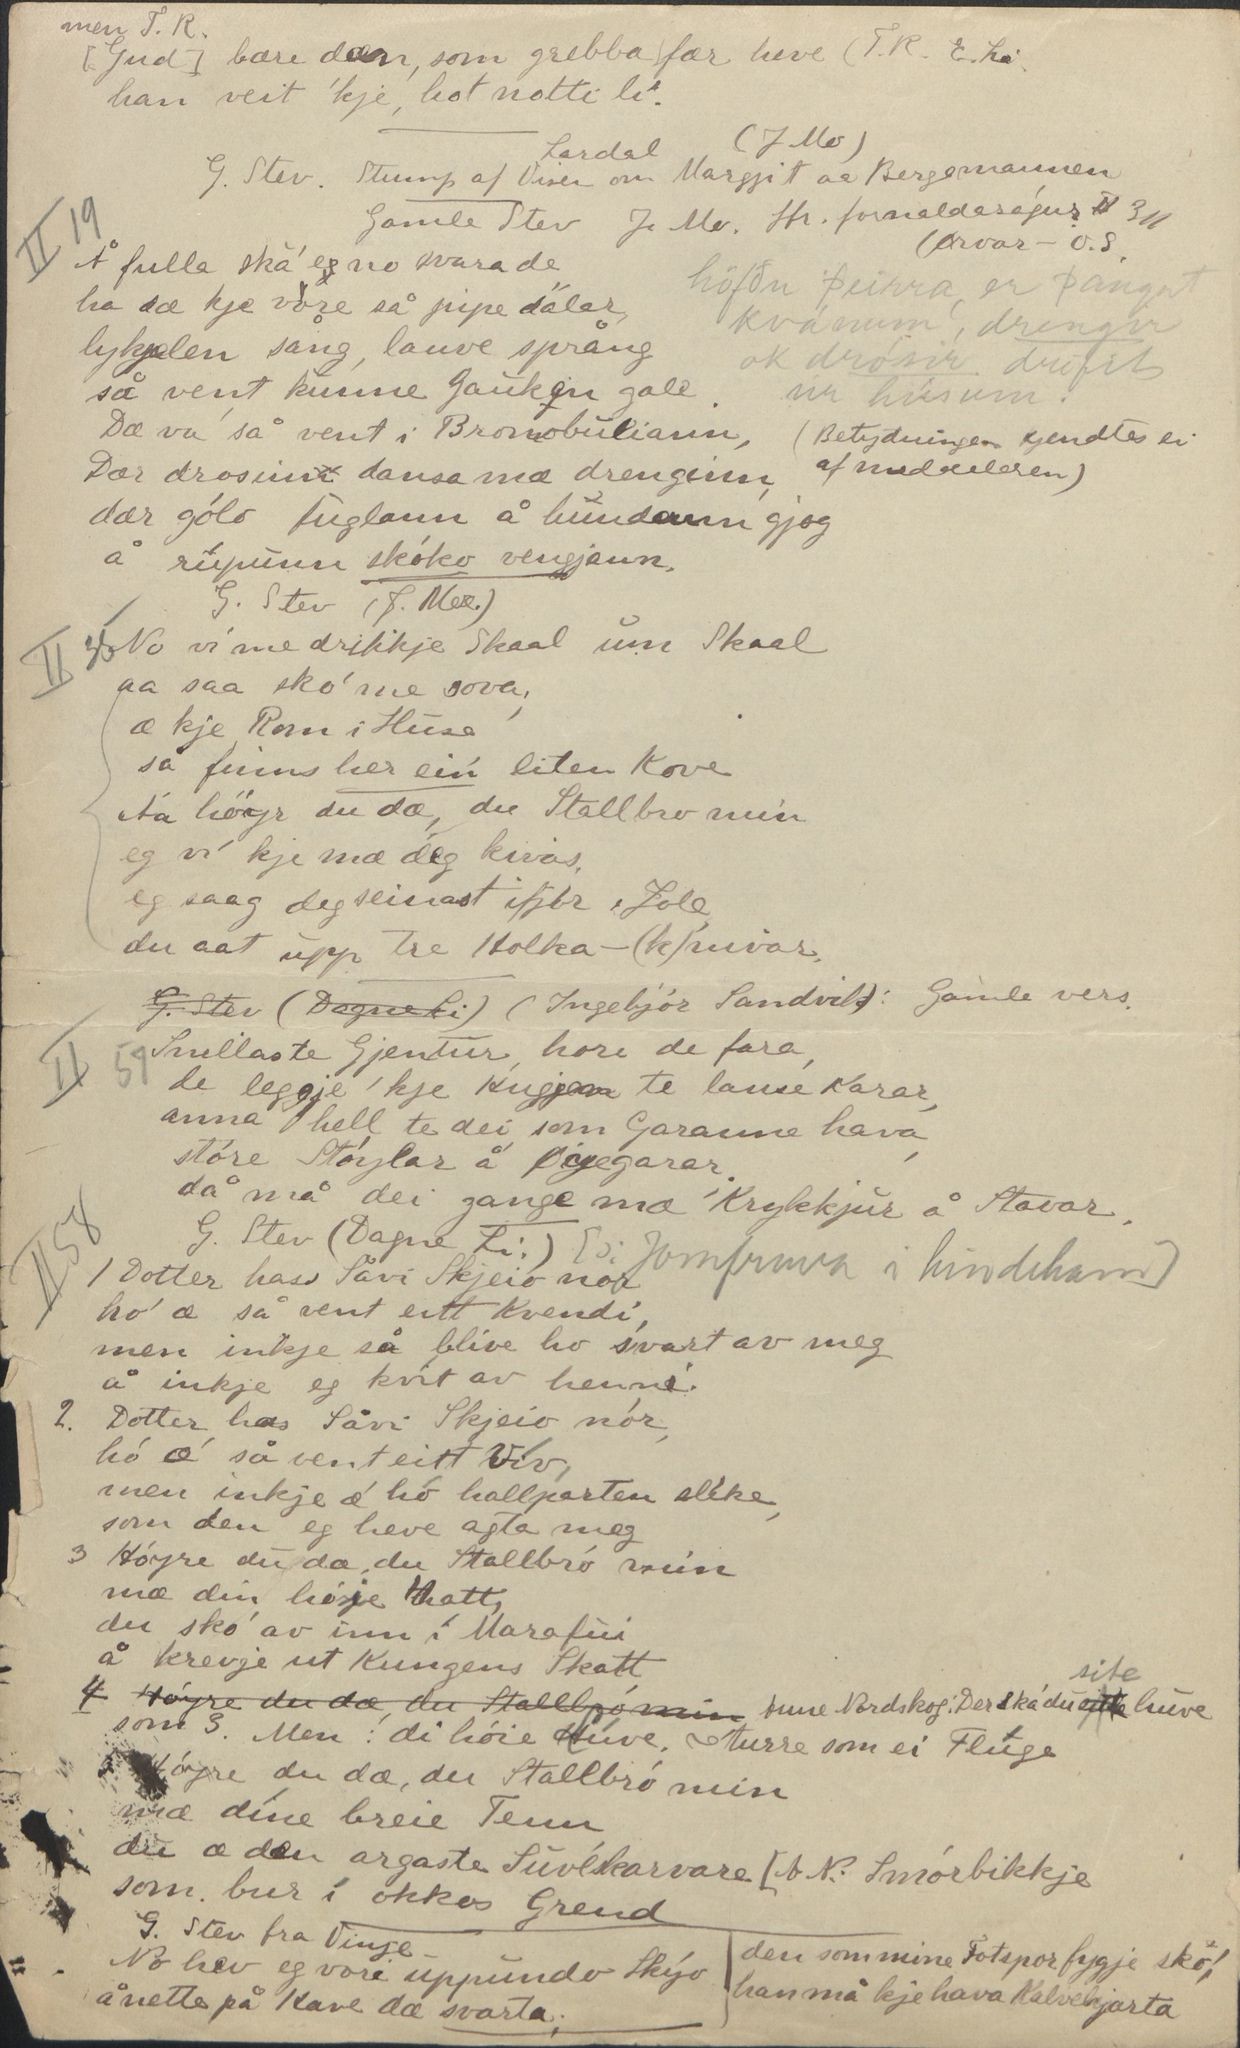 men T. R.
[Gud] bære dæn, som grebba fær heve (T.R. E. ha
han veit 'kje, hot notti li'.
Lardal (J. Mo)
G. Stev. Stump af Visen om Margjit aa Bergemannen
Gamle Stev J. Mo. Sfr. fornaldarsögur II 311
(Ørvar-O.S.
II 19
Å fulla ska' eg no svara de
ha dæ kje vore så pipe dálar,
lykjelen sång, lauve språng
så vent kunne Gaukjin gale.
höfðu þeirra, er þángat
kvánum, drengir
ok drósir drifit
úr húsum.
Dæ va' så vent i Bromobuliann,
(Betydningen kjendtes ei
af meddeleren)
Dær drosinn dansa mæ drenginn,
dær gólo fuglann å hundann gjog
å rupunn skóko vengjann.
G. Stev (J. Mo.)
II 36
No vi' me drikkje Skaal um Skaal
aa saa sko' me sova,
æ kje Rom i Huse
så finns her ein liten Kove
Aa höyr du dæ, du Stallbro min
eg vi' kje mæ deg kivas,
eg saag deg seinast ifjor i Jole
du aat upp tre Holka-(k)nivar.
G. Stev (Dagne Li) (Ingebjór Sandvik): Gamle vers.
II 59
Snillaste Gjentur, hore de fara,
de leggje 'kje Hugjen te lause Karar,
anna hell te dei som Garanne hava,
stóre Stóylar å Øiyegarar.
då må dei gange mæ Krykkjur å Stavar.
G. Stev (Dagne Li.) [Si Jomfruva i hindeham]
II 58
1 Dotter hass Såvi Skjeio nór
hó æ så vent eitt Kvendi,
men inkje så blive ho svart av meg
å inkje eg kvit av henni.
2. Dotter has Såvi Skjeio nór,
hó æ' så vent eitt Viv,
men inkje æ' hó hallparten slike,
som den eg heve agta meg
3 Hóyre du dæ, du Stallbró min
mæ din hóie Hatt,
du sko' av inn i Marafui
å krevje ut Kungens Skatt
4 Hóyre du dæ, du Stallbró min Sune Nordskog: Der ská du site huve
som 3. Men: di hóie Húve, turre som ei Fluge
Hóyre du dæ, du Stallbró min
mæ dine breie Tenn
du æ den argaste Suvlskarvare [A. N: Smórbikkje
som bur i okkos Grend
G. Stev fra Vinje
No hev eg vori uppundo Skyo
å nette på Kave dæ svarta;
den som mine Fotspor fygje skó',
han må kje hava Kalvehjarta